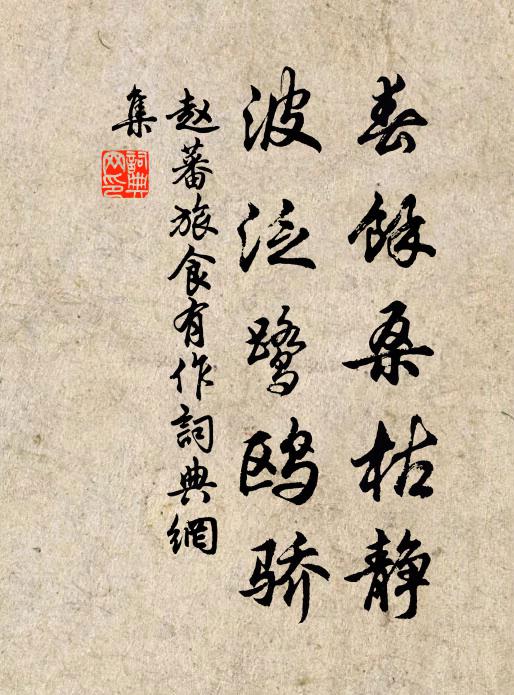 春餘桑柘静
波泛鹭鸥骄
赵蕃旅食有作詞典網
集
詞典
网印